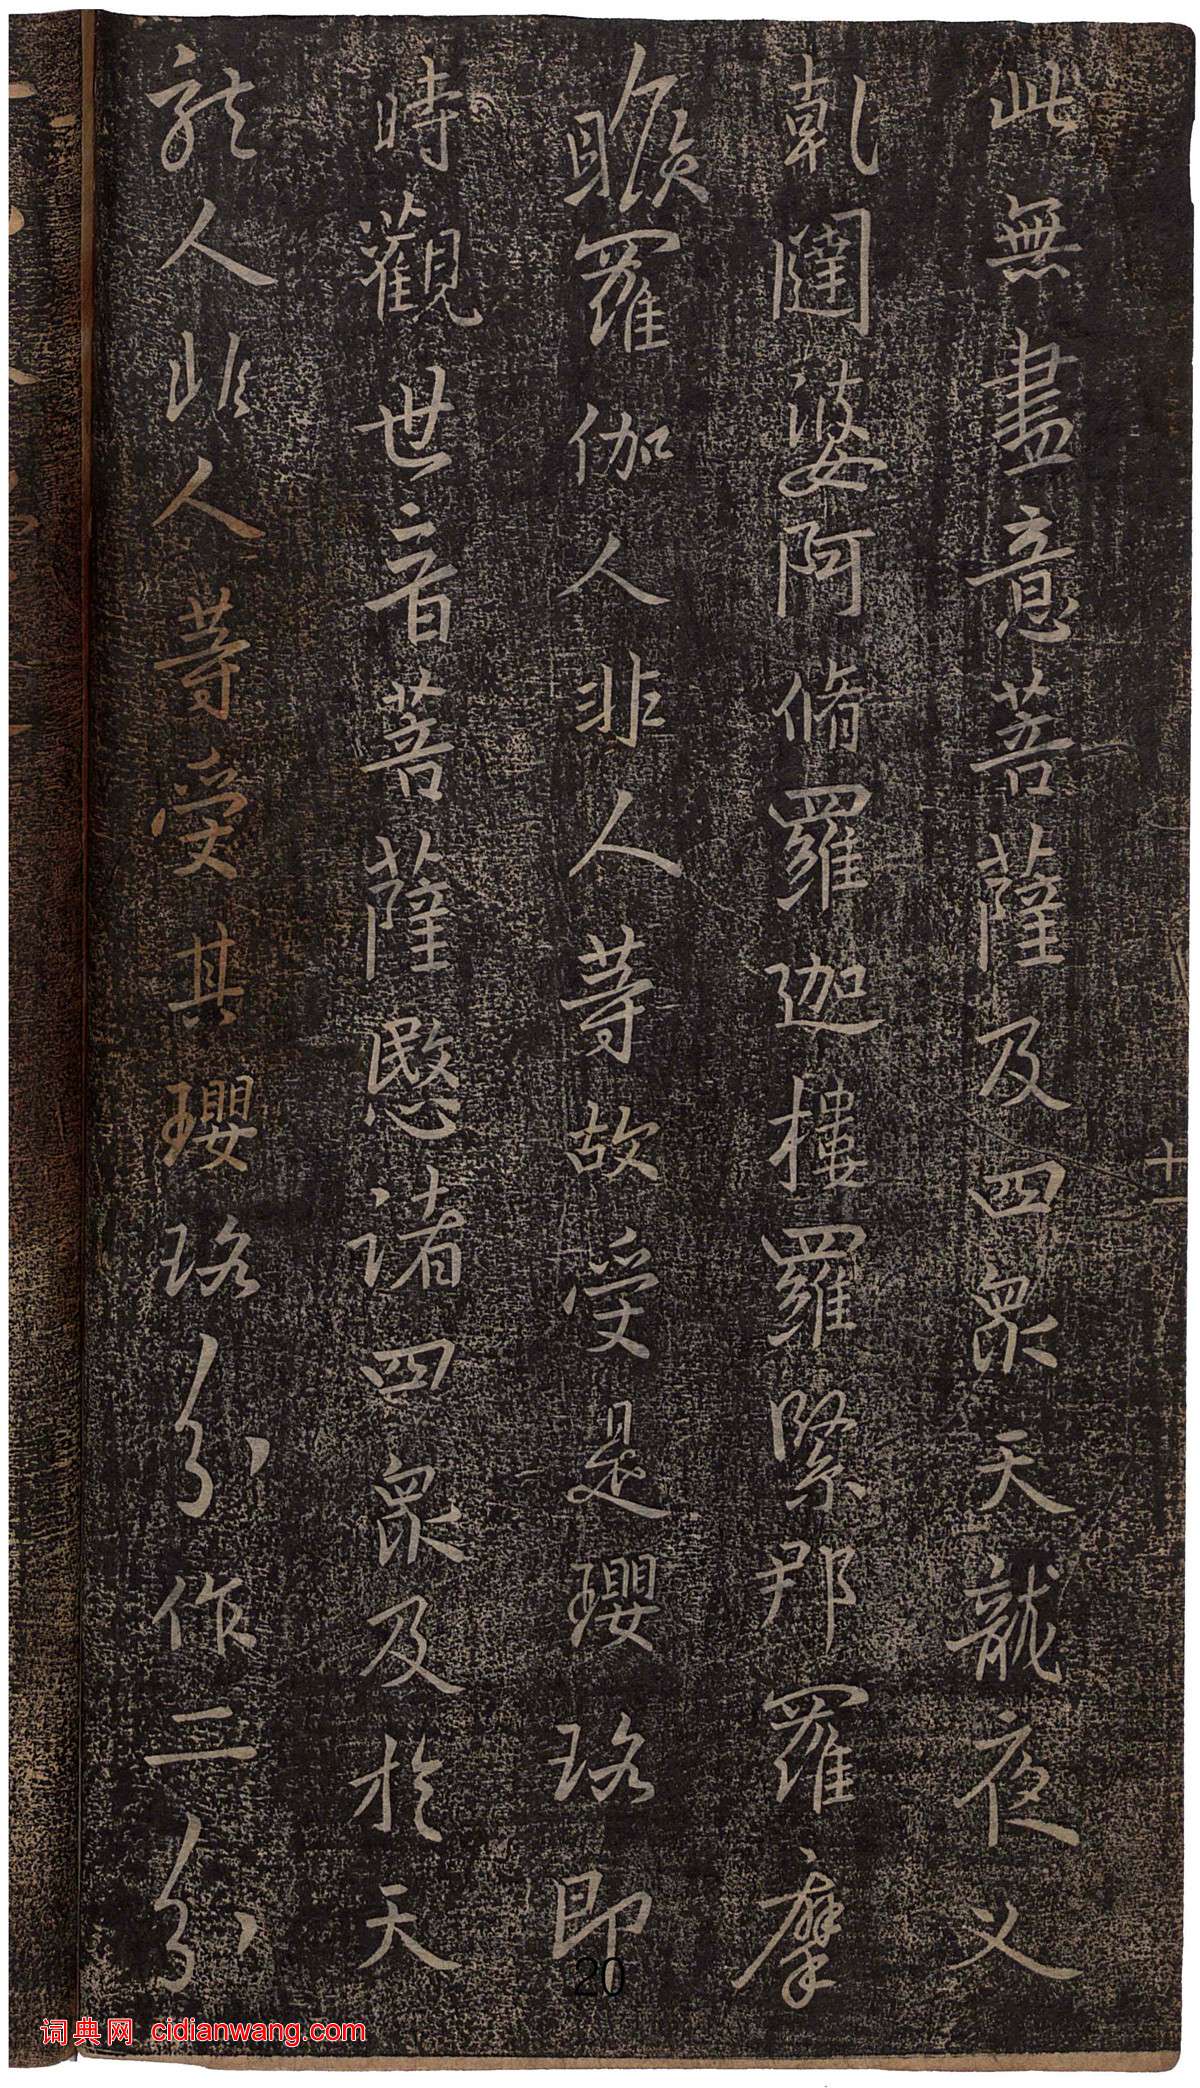 此無盡意菩薩及四眾天龍夜叉
乹闥婆阿脩羅迦樓羅緊那羅摩
睺羅伽人非人等故受是瓔珞即
時觀世音菩薩愍諸四眾及於天
龍人非人等受其瓔珞分作二分
十一
20
词典网 cidianwang.com